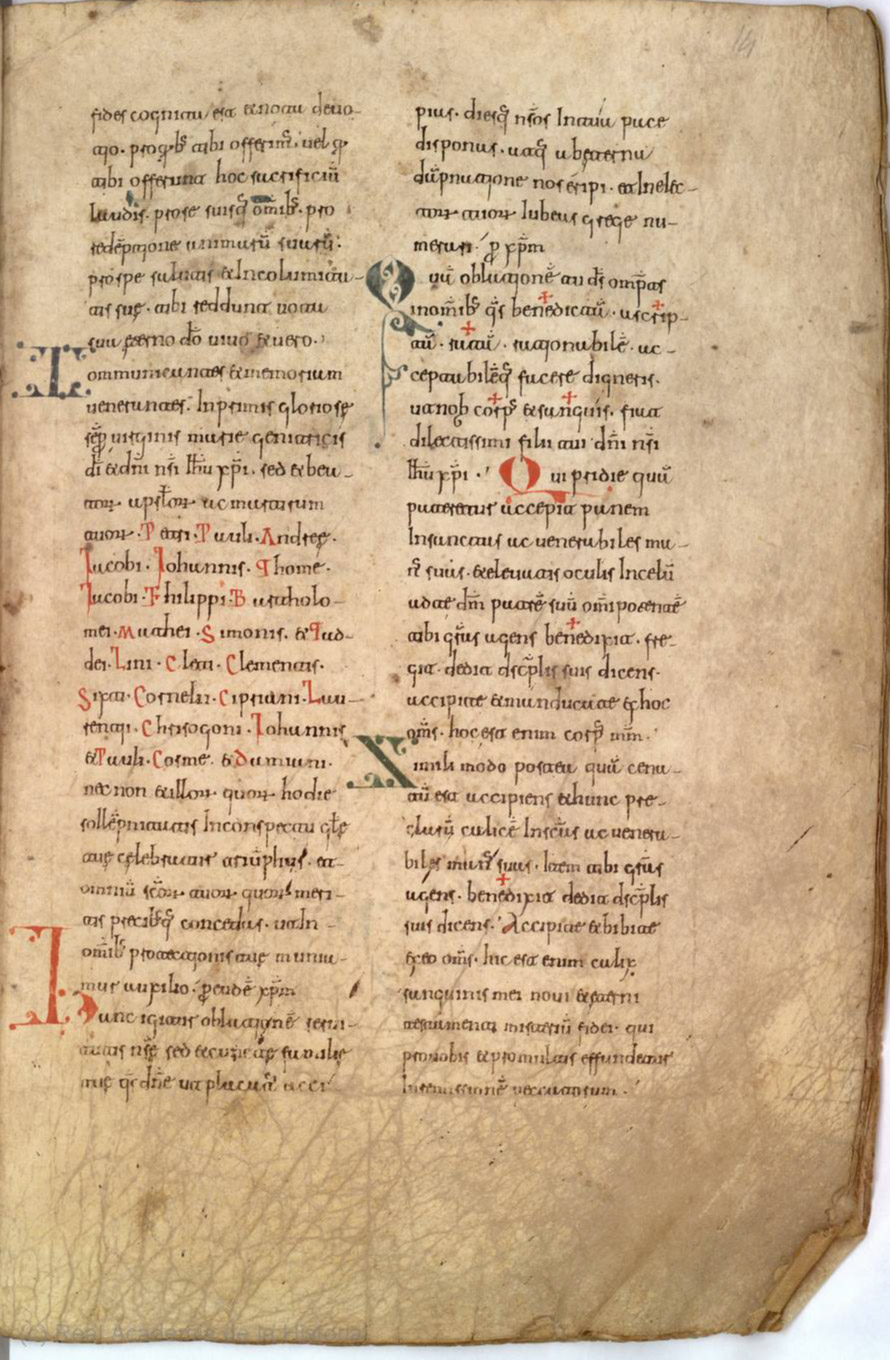 fides cognita est & nota deuo-
tio. pro q̄b; tibi offerim̄. uel q̄
tibi offerunt hoc sacrificiū
laudis. pro se suisq; om̄ib;. pro
redēptione animarū suarū.
pro spe salutis & Incolumita-
tis sue. tibi reddunt uota
sua eterno dō uiuo & uero.
Communicantes & memoriam
uenerantes. Inprimis gloriose
sēp uirginis marie genitricis
dī & dn̄i nr̄i Ihū xp̄i. sed & bea-
tor̄ apstlor̄ ac martirum
tuor̄. Petri. Pauli. Andree.
Iacobi. Iohannis. Thome.
Iacobi. Philippi. Bartholo-
mei. Mathei. Simonis. & Tad-
dei. Lini. Cleti. Clementis.
Sixti. Cornelii. Cipriani. Lau-
rentii. Chrisogoni. Iohannis
& Pauli. Cosme. & Damiani.
nec non & illor̄ quor̄ hodie
sollēpnitatis Inconspectu gl̄e
tue celebratur triūphus. et
omniū sc̄or̄ tuor̄ quor̄ meri-
tis precib;q; concedas. ut In
om̄ib; protectionis tue munia-
mur auxilio. p̄ eundē xp̄m
Hanc igitur oblationē serui-
tutis nr̄e sed & cuncte familie
tue q̄s dn̄e ut placatꝰ acci-
pias. diesq; nr̄os Intua pace
disponas. atq; ab eterna
dāpnatione nos eripi. et Inelec-
tor̄ tuor̄ iubeas grege nu-
merari. p̄ xp̄m
Quā oblationē tu ds̄ omp̄ts
inom̄ib; q̄s benedictā. ascrip-
tā. ratā. rationabilē. ac-
ceptabilēq; facere digneris.
ut a nob corpꝰ & sanguis. fiat
dilectissimi filii tui dn̄i nr̄i
Ihū xp̄i. Qui pridie quā
pateretur accepit panem
Insanctas ac uenerabiles ma-
nꝰ suas. & eleuatis oculis Incelū
ad te dm̄ patrē suū om̄ipotentē
tibi gr̄as agens benedixit. fre-
git. dedit dscp̄lis suis dicens.
accipite & manducate ex hoc
om̄s. hoc est enim corpꝰ mm̄.
Simili modo postea quā cena-
tū est accipiens & hunc pre-
clarū calicē Insctas ac uenera-
biles manꝰ suas. Item tibi gr̄as
agens. benedixit dedit dscp̄lis
suis dicens. Accipite & bibite
ex eo om̄s. hic est enim calix
sanguinis mei noui & eterni
testamenti misteriū fidei. qui
pro uobis & pro multis effundetur
Inremissionē peccatorum.
14
(C) Real Academia de la Historia